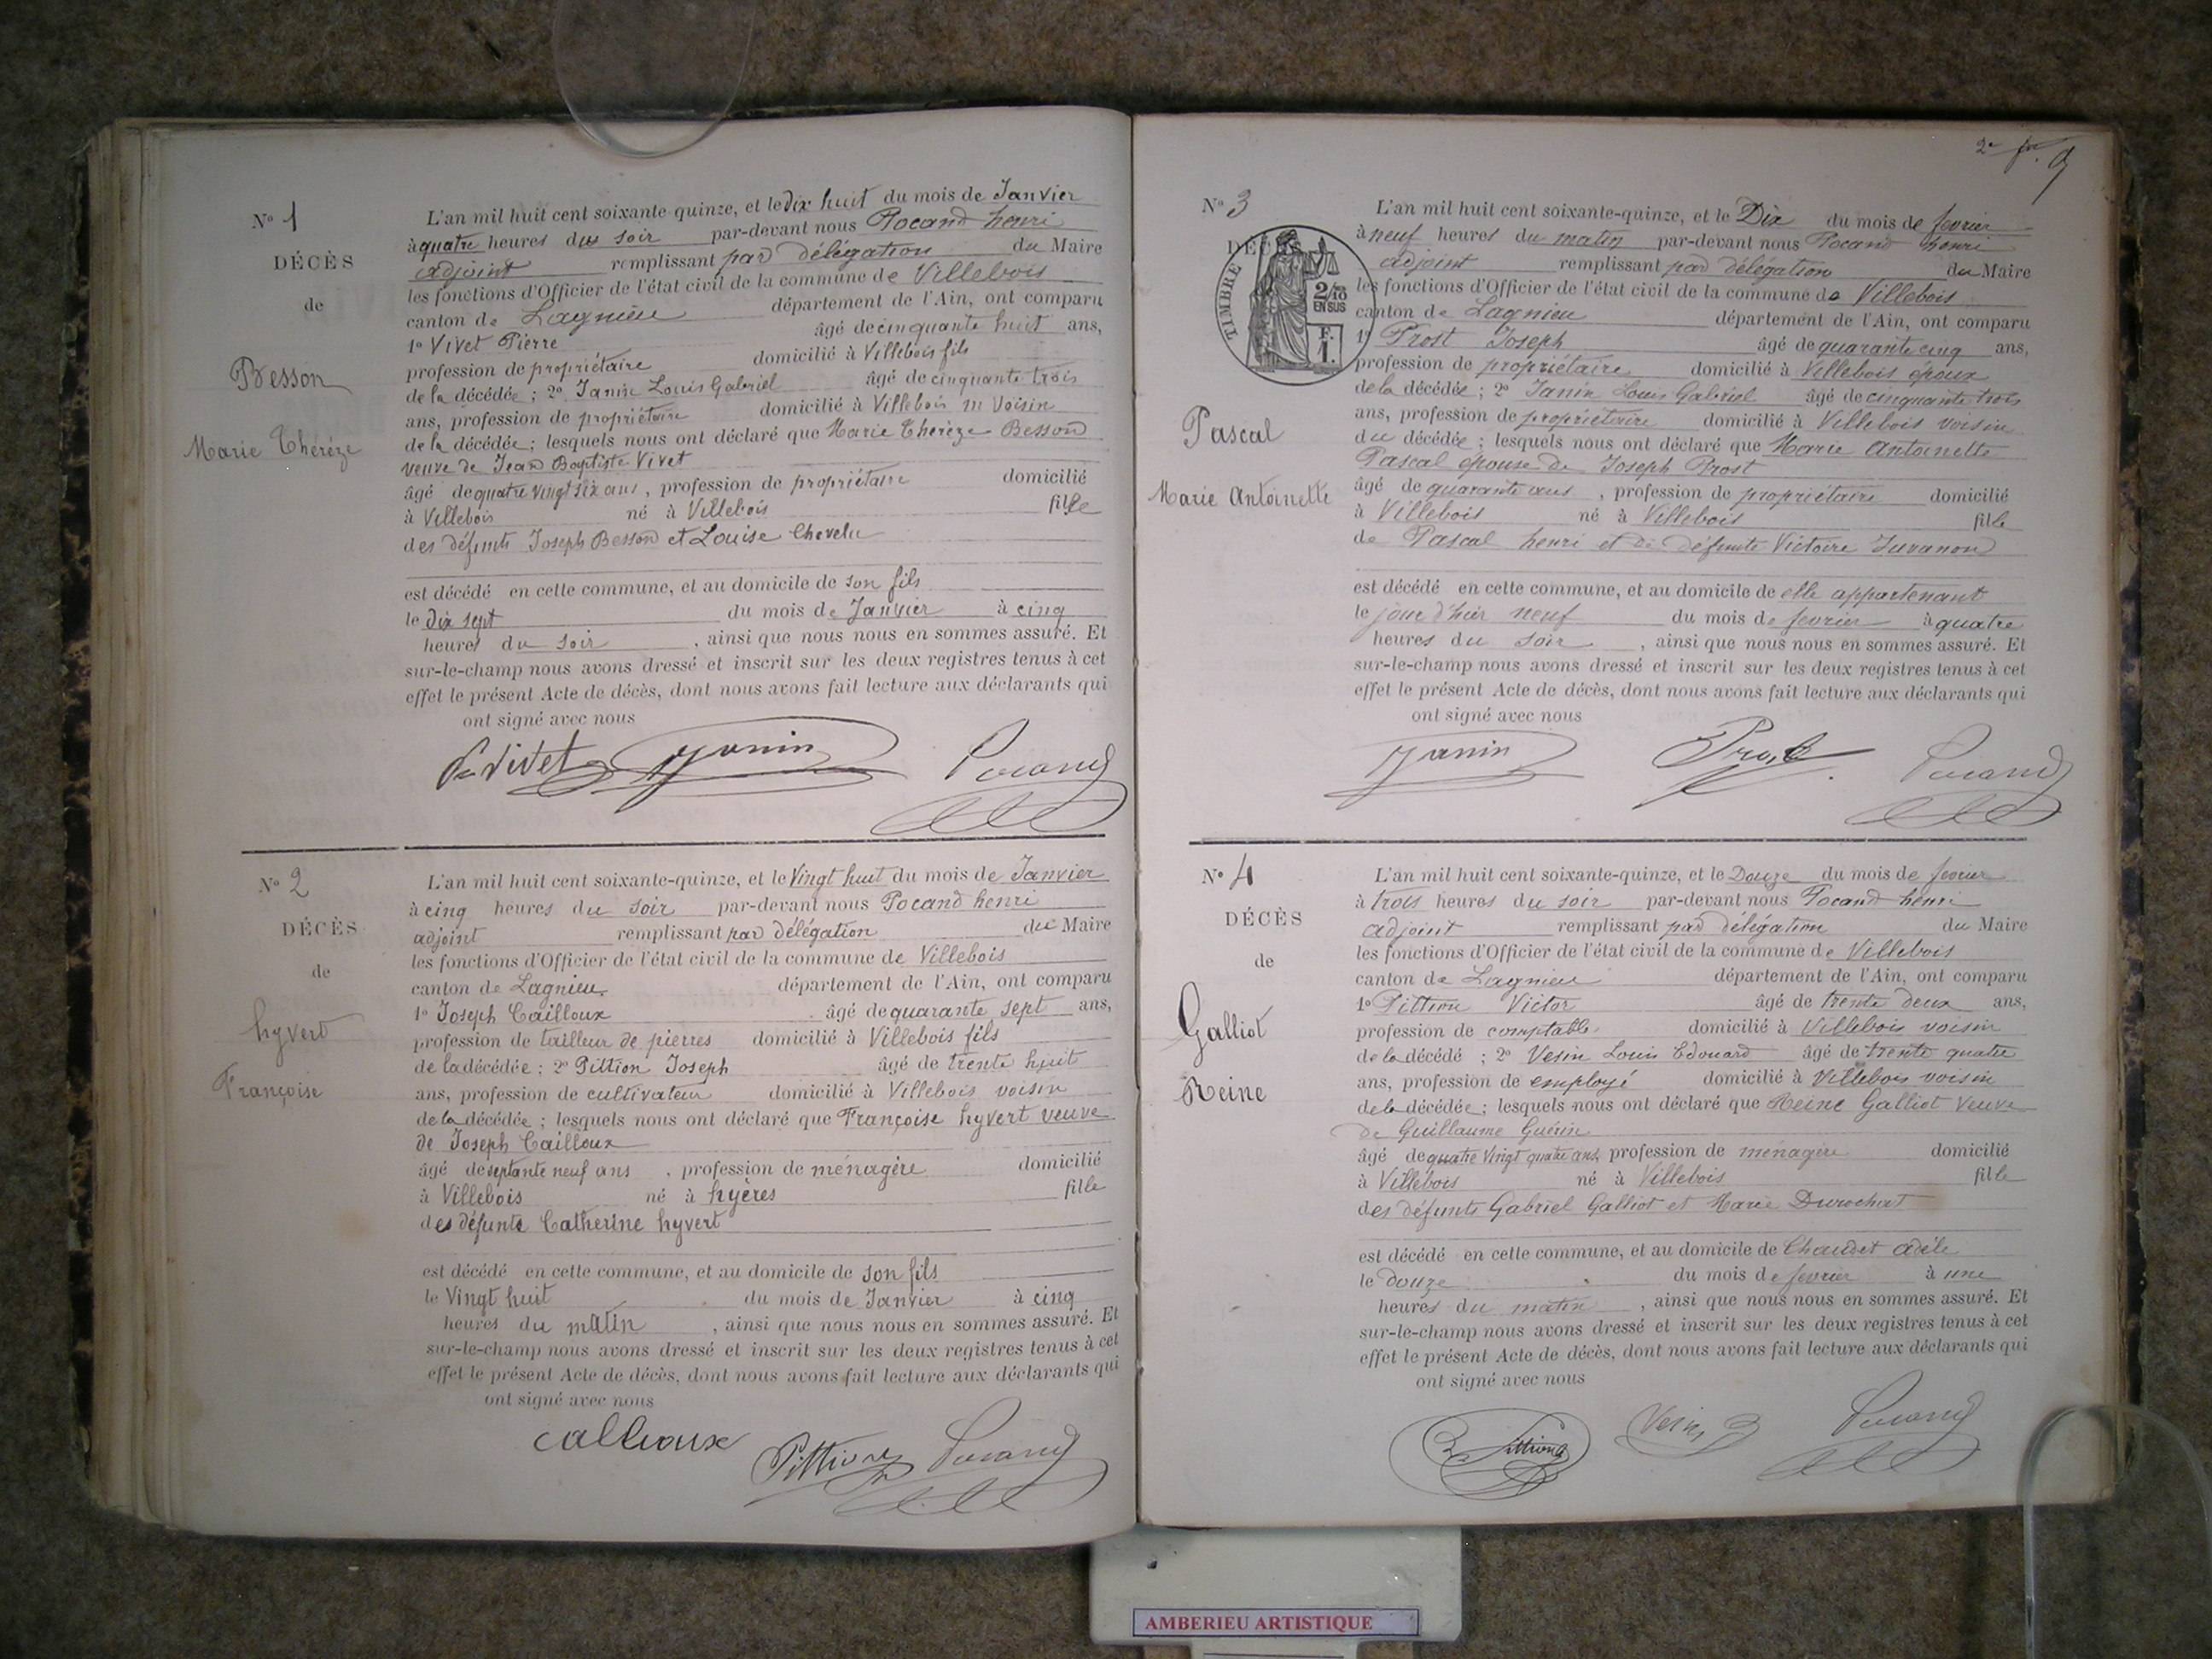 N° 1
DÉCÈS
de
Besson
Marie Thérèze
L'an mil huit cent soixante-quinze, et le dix huit du mois de Janvier
à quatre heures du soir par-devant nous Pocand henri
adjoint remplissant par délégation du Maire
les fonctions d'Officier de l'état civil de la commune de Villebois
canton de Lagnieu département de l'Ain, ont comparu
1° Vivet Pierre âgé de cinquante huit ans,
profession de propriétaire domicilié à Villebois fils
de la décédée ; 2° Janin Louis Gabriel âgé de cinquante trois
ans, profession de propriétaire domicilié à Villebois voisin
de la décédée ; lesquels nous ont déclaré que Marie Thérèze Besson
veuve de Jean Baptiste Vivet
âgé de quatre vingt six ans, profession de propriétaire domicilié
à Villebois né à Villebois fille
des défunts Joseph Besson et Louise Chevelu
est décédé en cette commune, et au domicile de son fils
le dix sept du mois de Janvier à cinq
heures du soir, ainsi que nous nous en sommes assuré. Et
sur-le-champ nous avons dressé et inscrit sur les deux registres tenus à cet
effet le présent Acte de décès, dont nous avons fait lecture aux déclarants qui
ont signé avec nous
Vivet Janin Pocand
N° 2
DÉCÈS
de
hyvert
Françoise
L'an mil huit cent soixante-quinze, et le Vingt huit du mois de Janvier
à cinq heures du soir par-devant nous Pocand henri
adjoint remplissant par délégation du Maire
les fonctions d'Officier de l'état civil de la commune de Villebois
canton de Lagnieu département de l'Ain, ont comparu
1° Joseph Cailloux âgé de quarante sept ans,
profession de tailleur de pierres domicilié à Villebois fils
de la décédée ; 2° Pittion Joseph âgé de trente huit
ans, profession de cultivateur domicilié à Villebois voisin
de la décédée ; lesquels nous ont déclaré que Françoise hyvert veuve
de Joseph Cailloux
âgé de septante neuf ans, profession de ménagère domicilié
à Villebois né à hyères fille
des défunte Catherine hyvert
est décédé en cette commune, et au domicile de son fils
le Vingt huit du mois de Janvier à cinq
heures du matin, ainsi que nous nous en sommes assuré. Et
sur-le-champ nous avons dressé et inscrit sur les deux registres tenus à cet
effet le présent Acte de décès, dont nous avons fait lecture aux déclarants qui
ont signé avec nous
Cailloux Pittion Pocand
2e 9
N° 3
TIMBRE
2/10
EN SUS
F.
1.
Pascal
Marie Antoinette
L'an mil huit cent soixante-quinze, et le Dix du mois de fevrier
à neuf heures du matin par-devant nous Pocand henri
adjoint remplissant par délégation du Maire
les fonctions d'Officier de l'état civil de la commune de Villebois
canton de Lagnieu département de l'Ain, ont comparu
1° Prost Joseph âgé de quarante cinq ans,
profession de propriétaire domicilié à Villebois époux
de la décédée ; 2° Janin Louis Gabriel âgé de cinquante trois
ans, profession de propriétaire domicilié à Villebois voisin
du décédée ; lesquels nous ont déclaré que Marie Antoinette
Pascal épouse de Joseph Prost
âgé de quarante ans, profession de propriétaire domicilié
à Villebois né à Villebois fille
de Pascal henri et de défunte Victoire Juvanon
est décédé en cette commune, et au domicile de elle appartenant
le jour d'hier neuf du mois de fevrier à quatre
heures du soir, ainsi que nous nous en sommes assuré. Et
sur-le-champ nous avons dressé et inscrit sur les deux registres tenus à cet
effet le présent Acte de décès, dont nous avons fait lecture aux déclarants qui
ont signé avec nous
Janin Prost Pocand
N° 4
DÉCÈS
de
Galliot
Reine
L'an mil huit cent soixante-quinze, et le Douze du mois de fevrier
à trois heures du soir par-devant nous Pocand henri
adjoint remplissant par délégation du Maire
les fonctions d'Officier de l'état civil de la commune de Villebois
canton de Lagnieu département de l'Ain, ont comparu
1° Pittion Victor âgé de trente deux ans,
profession de comptable domicilié à Villebois voisin
de la décédé ; 2° Vesin Louis Edouard âgé de trente quatre
ans, profession de employé domicilié à Villebois voisin
de la décédée ; lesquels nous ont déclaré que Reine Galliot Veuve
de Guillaume Guérin
âgé de quatre vingt quatre ans, profession de ménagère domicilié
à Villebois né à Villebois fille
des défunts Gabriel Galliot et Marie Durochat
est décédé en cette commune, et au domicile de Chaudet adèle
le douze du mois de fevrier à une
heures du matin, ainsi que nous nous en sommes assuré. Et
sur-le-champ nous avons dressé et inscrit sur les deux registres tenus à cet
effet le présent Acte de décès, dont nous avons fait lecture aux déclarants qui
ont signé avec nous
Pittion Vesin Pocand
AMBERIEU ARTISTIQUE